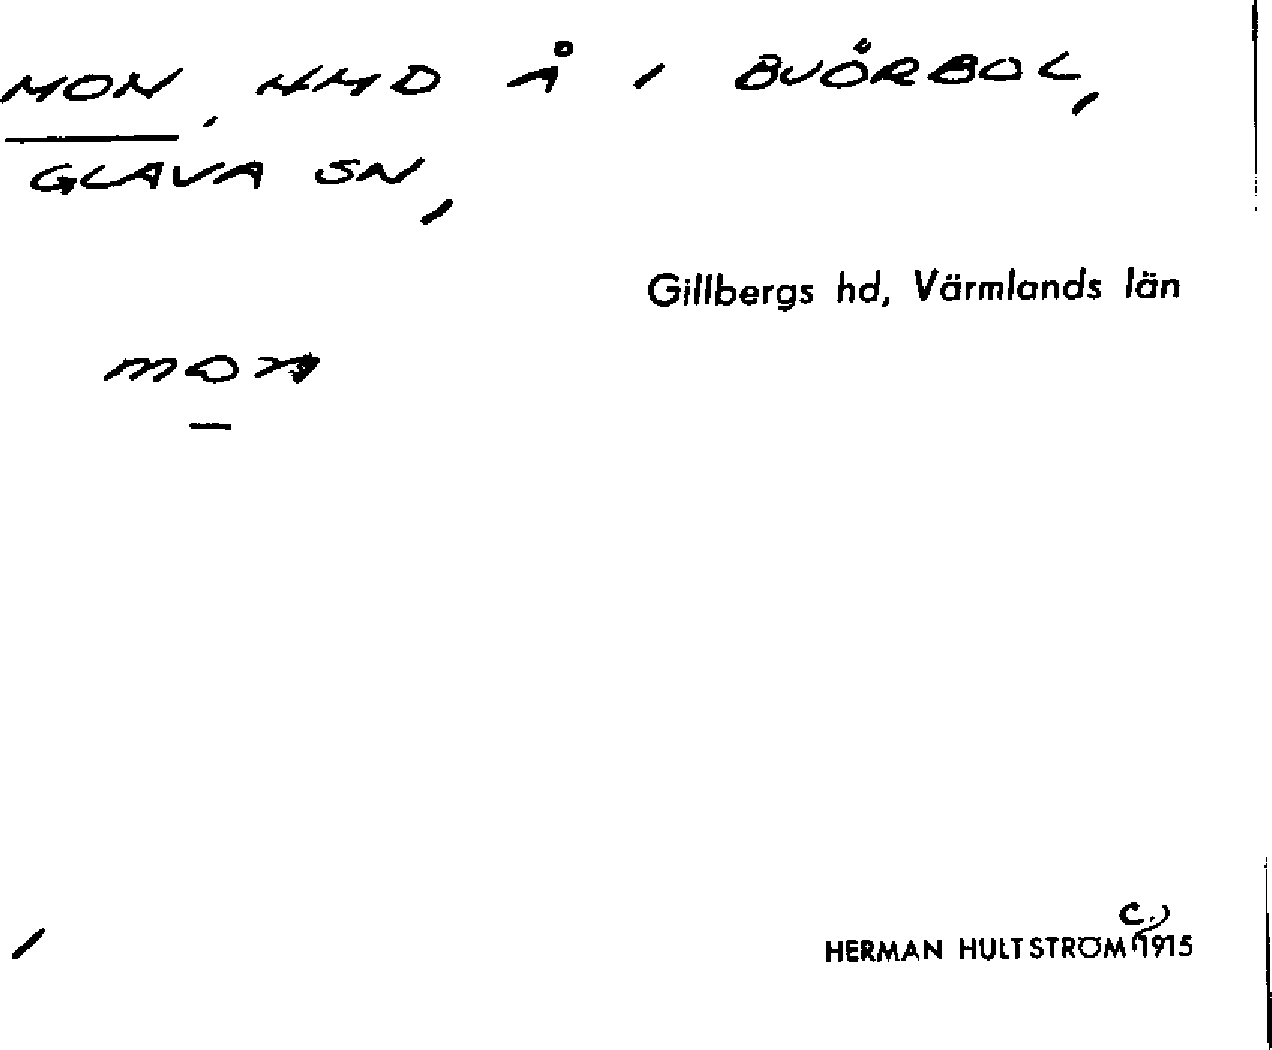 MON, HMD Å I BJÖRBOL,
GLAVA SN,
Gillbergs hd, Värmlands län
mon
HERMAN HULTSTRÖM c. 1915